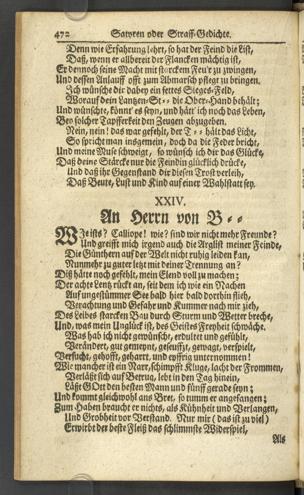 472 Satyren oder Straff-Gedichte.
Denn wie Erfahrung lehrt, so hat der Feind die List,
Daß, wenn er allbereit der Flancken mächtig ist,
Er dennoch seine Macht mit starckem Feu'r zu zwingen,
Und dessen Anlauff offt zum Abmarsch pflegt zu bringen.
Ich wünsche dir dabey ein fettes Sieges-Feld,
Worauf dein Lantzen-St-- die Ober-Hand behält;
Und wünschte, könnt' es seyn, und hätt' ich noch das Leben,
Bey solcher Tapfferkeit den Zeugen abzugeben.
Nein, nein! das war gefehlt, der T-- hält das Licht,
So spricht man insgemein, doch da die Feder bricht,
Und meine Muse schweigt, so wünsch ich dir das Glücke,
Daß deine Stärcke nur die Feindin glücklich drücke,
Und daß ihr Gegenstand dir diesen Trost verleih,
Daß Beute, Lust und Kind auf einer Wahlstatt sey.
XXIV.
An Herrn von B--
Wie ists? Calliope! wie? sind wir nicht mehr Freunde?
Und greifft mich irgend auch die Arglist meiner Feinde,
Die Günthern auf der Welt nicht ruhig leiden kan,
Nunmehr zu guter letzt mit deiner Trennung an?
Diß hätte noch gefehlt, mein Elend voll zu machen;
Der achte Lentz rückt an, seit dem ich wie ein Nachen
Auf ungestümmer See bald hier bald dorthin stieß,
Verachtung und Gefahr und Kummer nach mir zieh,
Des Leibes starcken Bau durch Sturm und Wetter breche,
Und, was mein Unglück ist, des Geistes Freyheit schwäche.
Was hab ich nicht gewünscht, erdultet und gefühlt,
Verändert, gut gemeynt, geseuffzt, gewagt, verspielt,
Versucht, gehofft, geharrt, und eyffrig unternommen!
Wie mancher ist ein Narr, schimpfft Kluge, lacht der Frommen,
Verläßt sich auf Betrug, lebt in den Tag hinein,
Läßt GOtt den besten Mann und fünff gerade seyn;
Und kommt gleichwohl ans Bret, so tumm er angefangen;
Zum Haben braucht er nichts, als Kühnheit und Verlangen,
Und Grobheit vor Verstand. Nur mir (das ist zu viel)
Erwirbt der beste Fleiß das schlimmste Widerspiel,
Als